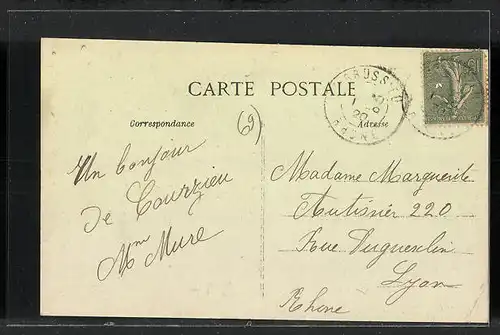 CARTE POSTALE
Correspondance
Adresse
69
Un bonjour
de Courzieu
Mme Mure
Madame Marguerite
Autissier 220
Rue Duguesclin
Lyon
Rhone
RHONE